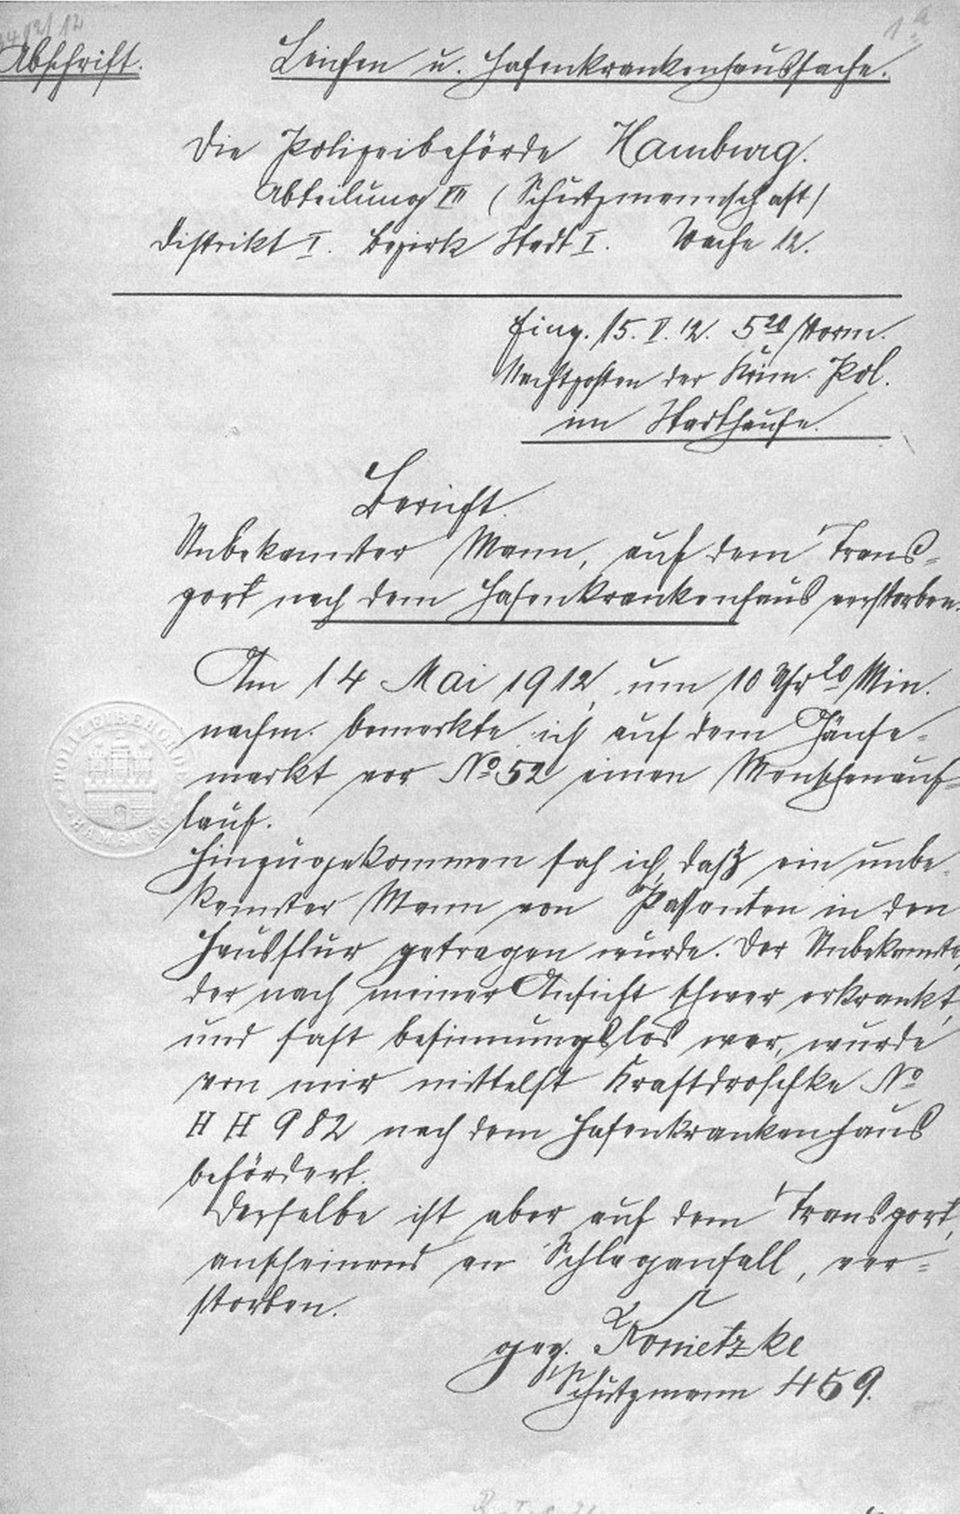 Abschrift.
Leichen u. Hafenkrankenhaussache.
Die Polizeibehörde Hamburg.
Abteilung III (Schutzmannschaft)
Distrikt I. Bezirk Stadt I. Wache 12.
Eing. 15. V. 12. 5²⁰ Vorm.
Nachtposten der Krim. Pol.
im Stadthause.
Bericht.
Unbekannter Mann, auf dem Trans-
port nach dem Hafenkrankenhaus verstorben.
Am 14 Mai 1912, um 10 Uhr 20 Min.
nachm. bemerkte ich auf dem Gänse-
markt vor No 52 einen Menschenauf-
lauf.
Hinzugekommen sah ich, daß ein unbe-
kannter Mann von Passanten in den
Hausflur getragen wurde. Der Unbekannte,
der nach meiner Ansicht schwer erkrankt,
und fast besinnungslos war, wurde
von mir mittelst Kraftdroschke No
H H 982 nach dem Hafenkrankenhaus
befördert.
Derselbe ist aber auf dem Transport,
anscheinend an Schlaganfall, ver-
storben.
gez. Konietzke
Schutzmann 459.
POLIZEIBEHÖRDE HAMBURG